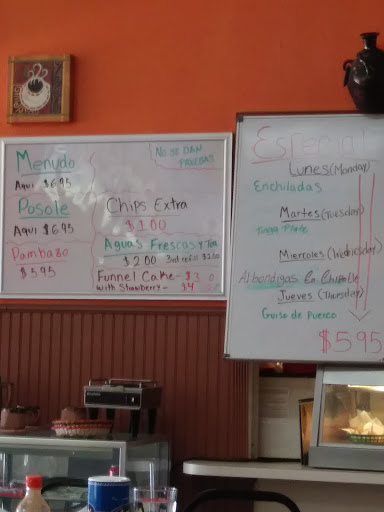 Menudo
Aqui $6.95
Posole
Aqui $6.95
Pambazo
$5.95
No se dan
pruebas
Chips Extra
$1.00
Aguas Frescas y Tea
$2.00 3rd refill
Funnel Cake - $3
with Strawberry - $4
Especial
Lunes (Monday)
Enchiladas
Martes (Tuesday)
Miercoles (Wednesday)
Albondigas
Jueves (Thursday)
Guiso de Puerco
$5.95